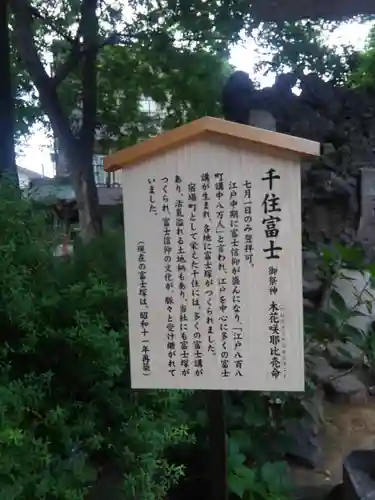 千住富士 御祭神 木花咲耶比売命
七月一日のみ登拝可。
江戸中期に富士信仰が盛んになり、「江戸八百八
町講中八万人」と言われ、江戸を中心に多くの富士
講が生まれ、各地に富士塚がつくられました。
宿場町として栄えた千住には、多くの富士講が
あり、活気溢れる土地柄もあり、当社にも富士塚が
つくられ、富士信仰の文化が、脈々と受け継がれて
いました。
（現在の富士塚は、昭和十一年再築）